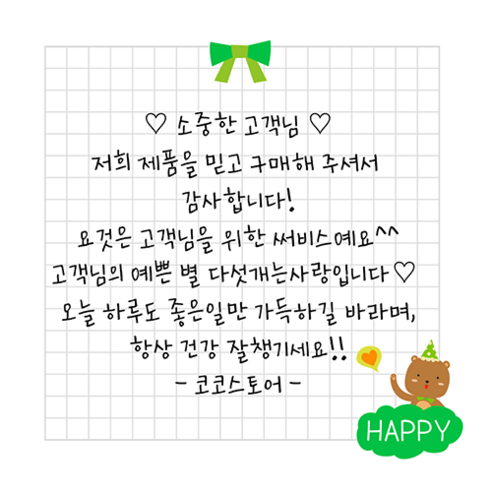 ♡ 소중한 고객님 ♡
저희 제품을 믿고 구매해 주셔서
감사합니다!
요것은 고객님을 위한 써비스예요^^
고객님의 예쁜 별 다섯개는사랑입니다♡
오늘 하루도 좋은일만 가득하길 바라며,
항상 건강 잘챙기세요!!
- 코코스토어 -
HAPPY